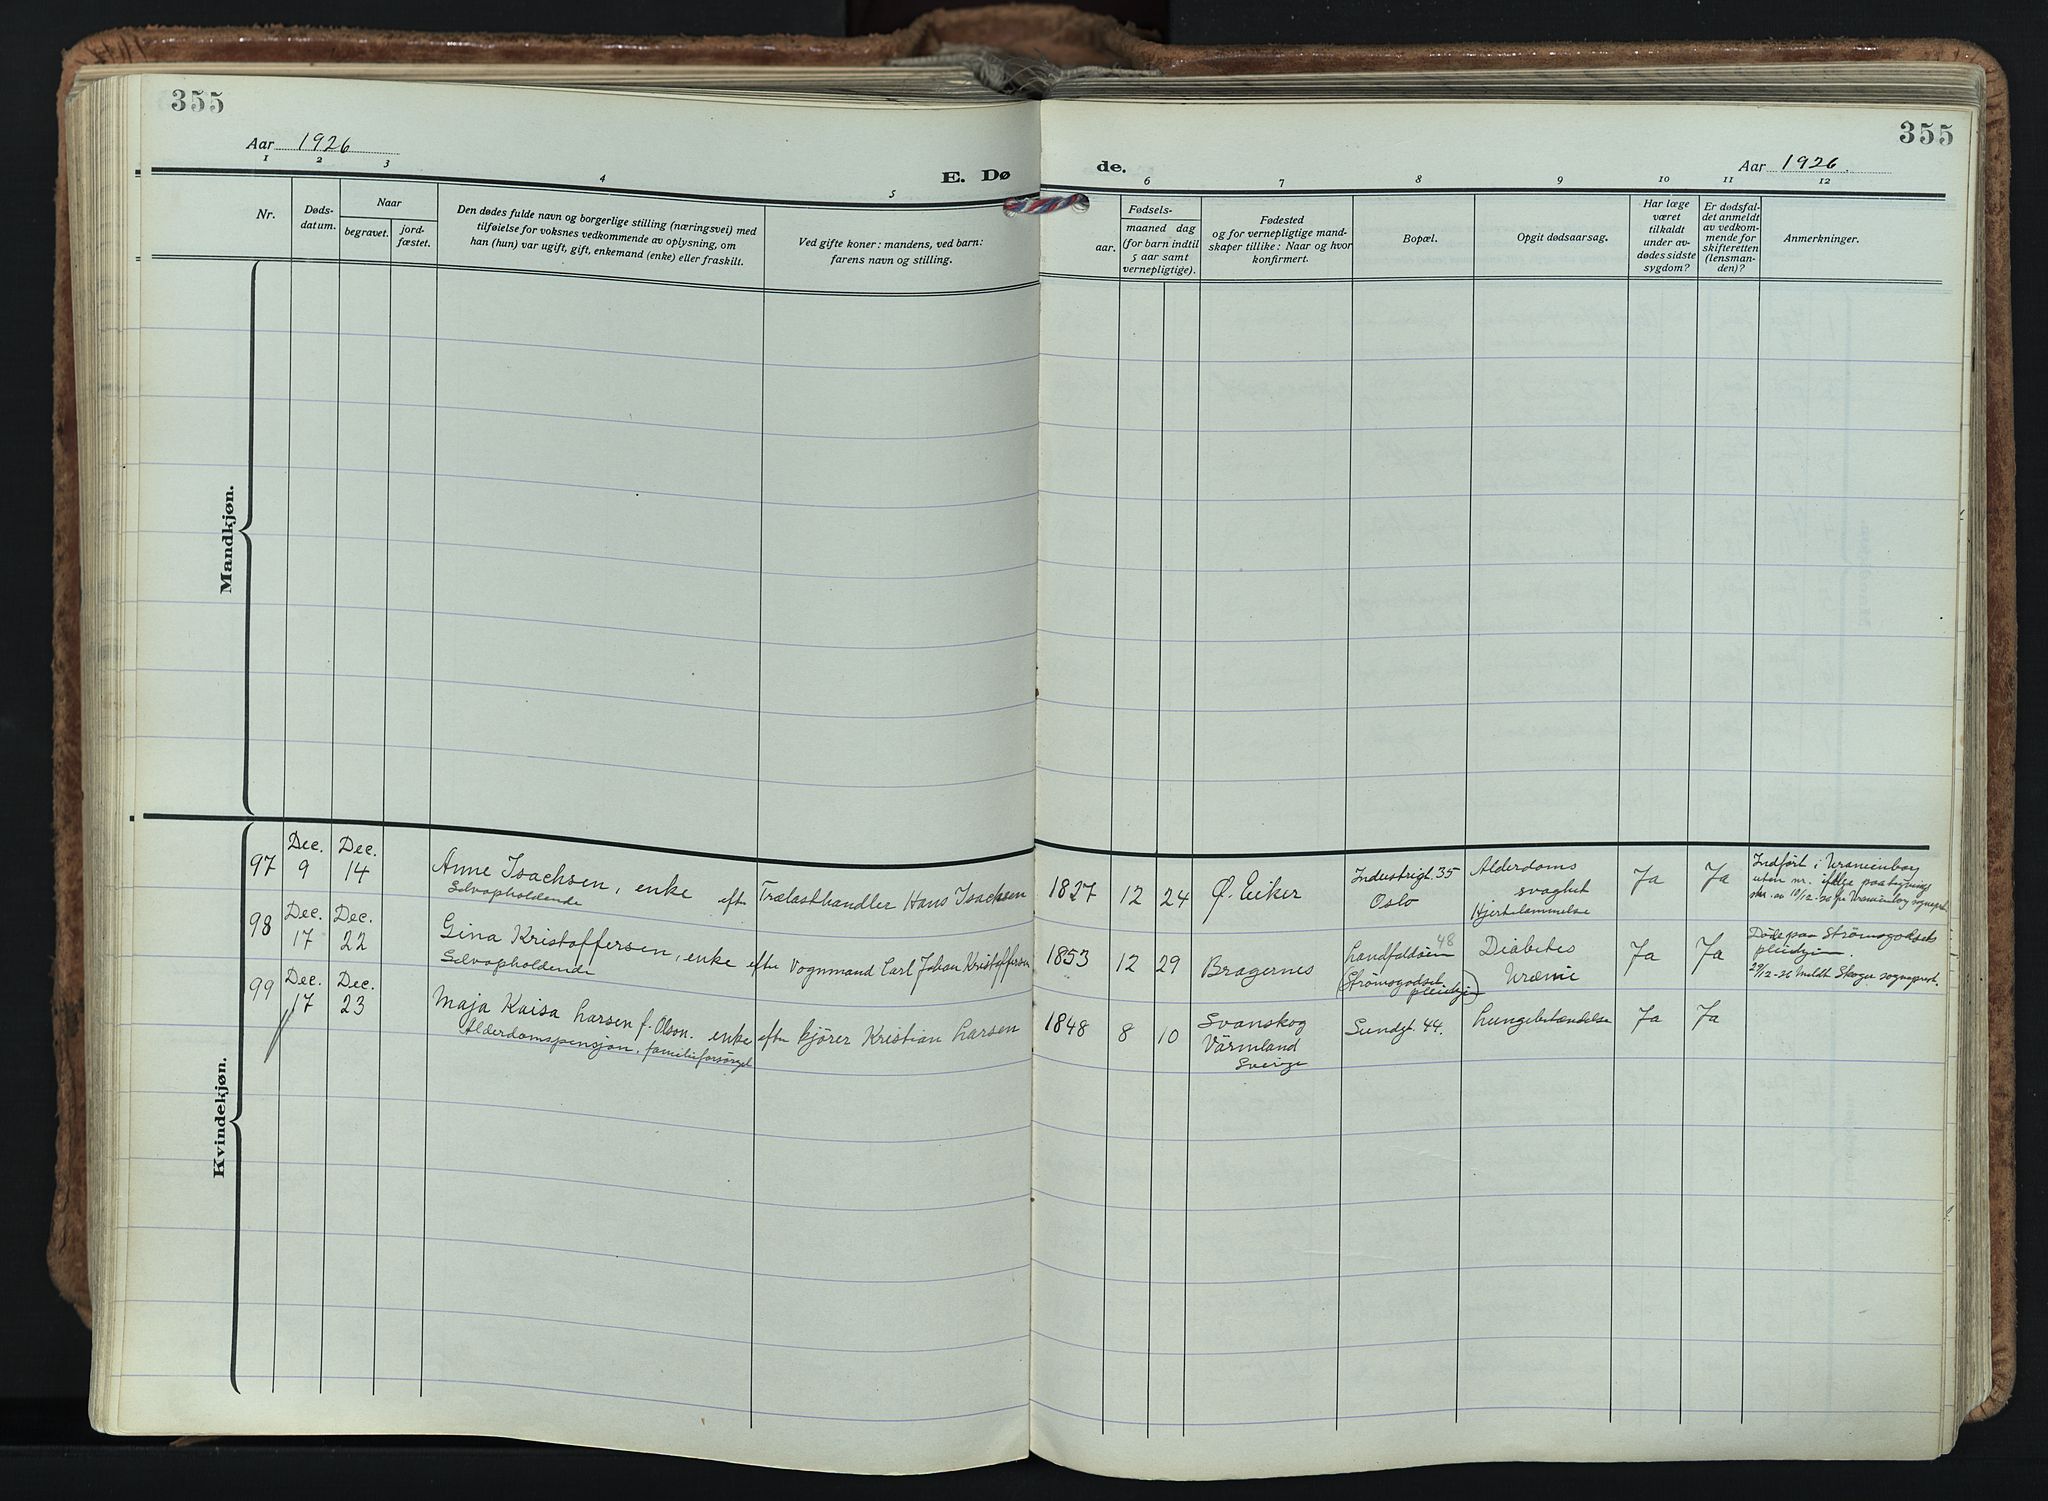 355
355
Aar 1926
Aar 1926
E. Dø
de.
1 2 3 4 5
6 7 8 9 10 11 12
Nr.
Døds-
datum.
Naar
begravet.
jord-
fæstet.
Den dødes fulde navn og borgerlige stilling (næringsvei) med
tilføielse for voksnes vedkommende av oplysning, om
han (hun) var ugift, gift, enkemand (enke) eller fraskilt.
Ved gifte koner: mandens, ved barn:
farens navn og stilling.
Fødsels-
aar.
maaned dag
(for barn indtil
5 aar samt
vernepligtige).
Fødested
og for vernepligtige mand-
skaper tillike: Naar og hvor
konfirmert.
Bopæl.
Opgit dødsaarsag.
Har læge
været
tilkaldt
under av-
dødes sidste
sygdom?
Er dødsfal-
det anmeldt
av vedkom-
mende for
skifteretten
(lensman-
den)?
Anmerkninger.
Mandkjøn.
Kvindekjøn.
97
Dec.
9
Dec.
14
Anne Isachsen, enke
Selvopholdende
efter Trælasthandler Hans Isachsen
1827 12 24
Ø. Eiker
Industrigt. 35
Oslo
Alderdoms
svaghet
Hjertelammelse
Ja
Ja
Indført i Uranienborg
uten nr. ifølge paategning
10/12-26 fra Uranienborg sogneprest
98
Dec.
17
Dec.
22
Gina Kristoffersen, enke
Selvopholdende
efter Vognmand Carl Johan Kristoffersen
1853 12 29
Bragernes
Landfaldøen 48
(Strømsgodset
pleiehj.)
Diabetes
Uræmi
Ja
Ja
Døde paa Strømsgodsets
pleiehjem.
29/12-26 meldt Skoger sogneprest.
99
Dec.
17
Dec.
23
Maja Kaisa Larsen f. Olson. enke
Alderdomspensjon, familieforsørget
efter kjører Kristian Larsen
1848 8 10
Svanskog
Värmland
Sverige
Sundgt. 44.
Lungebetændelse
Ja
Ja